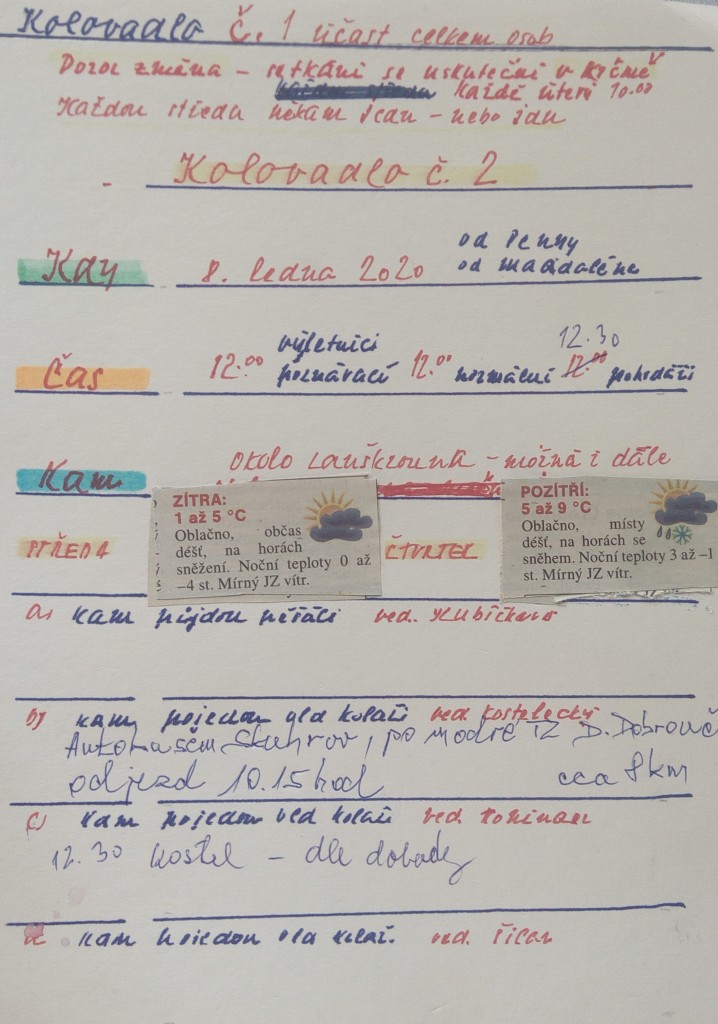 Kolovadlo č. 1 účast celkem osob
Pozor změna – setkání se uskuteční v Krčmě
každé úterí 10.00
Každou středu někam jedu – nebo jdu
Kolovadlo č. 2
od Penny
Kdy 8. ledna 2020 od Magdaléne
výletníci 12.30
Čas 12.00 poznávací 12.00 normální 12.00 pohodáři
Kam Okolo Lanškrouna – možná i dále
ZÍTRA:
1 až 5 °C
Oblačno, občas
déšť, na horách
sněžení. Noční teploty 0 až
–4 st. Mírný JZ vítr.
POZÍTŘÍ:
5 až 9 °C
Oblačno, místy
déšť, na horách se
sněhem. Noční teploty 3 až –1
st. Mírný JZ vítr.
STŘEDA ČTVRTEK
a) kam půjdou pěšáci ved. Kubíčková
b) kam pojedou kolaři ved. Kostelecký
Autobusem Skuhrov, po modré TZ D. Dobrouč
odjezd 10.15 hod cca 8 km
c) kam pojedou kolaři ved.
12.30 kostel – dle dohody
kam pojedou ved.